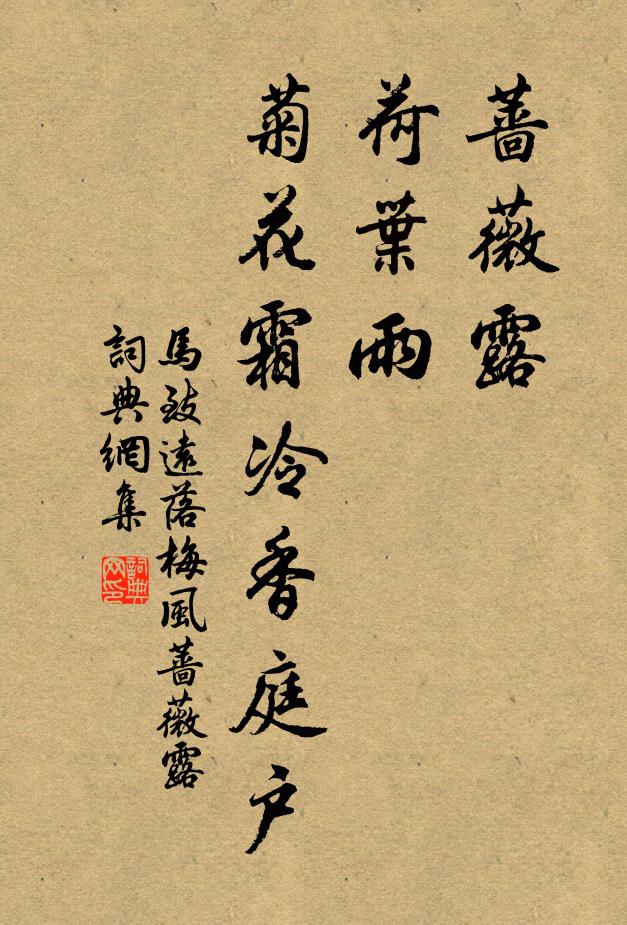 薔薇露
荷葉雨
菊花霜冷香庭戶
馬致遠落梅風薔薇露
詞典網集
詞典
网印